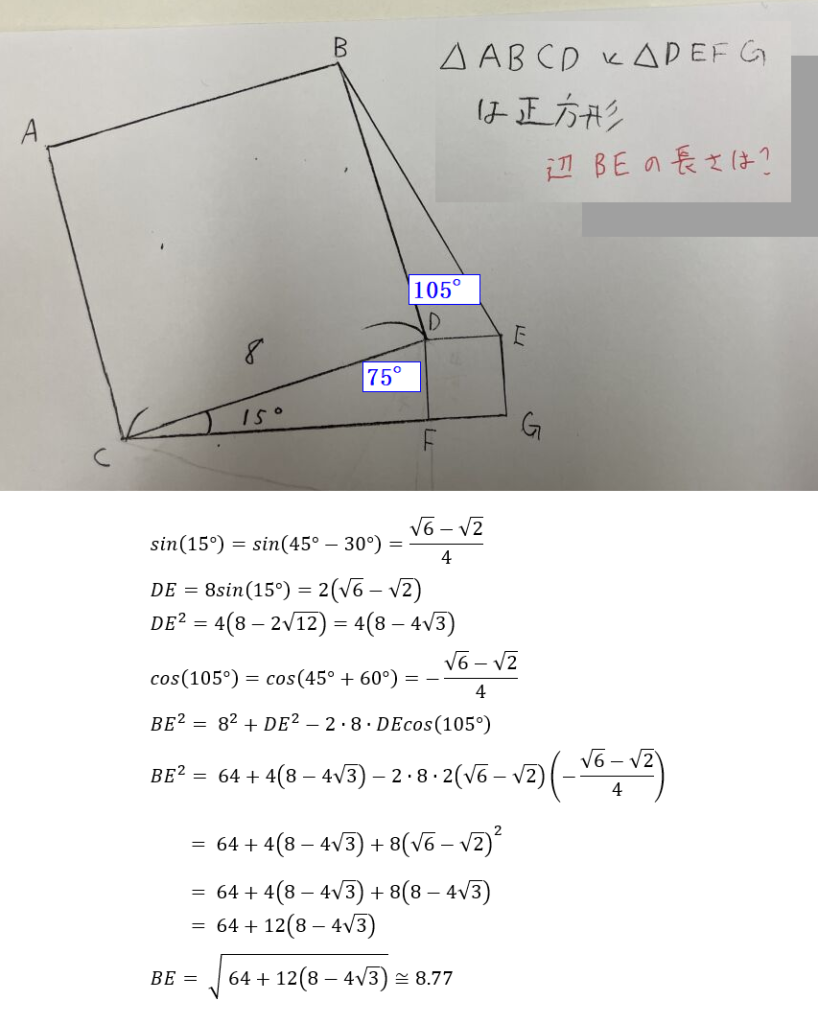 B
△ABCD と △DEFG
は正方形
A
辺 BE の長さは?
105°
D
E
8
75°
15°
G
F
C
sin(15°) = sin(45° − 30°) = (√6 − √2)/4
DE = 8sin(15°) = 2(√6 − √2)
DE² = 4(8 − 2√12) = 4(8 − 4√3)
cos(105°) = cos(45° + 60°) = −(√6 − √2)/4
BE² = 8² + DE² − 2 · 8 · DEcos(105°)
BE² = 64 + 4(8 − 4√3) − 2 · 8 · 2(√6 − √2)(−(√6 − √2)/4)
= 64 + 4(8 − 4√3) + 8(√6 − √2)²
= 64 + 4(8 − 4√3) + 8(8 − 4√3)
= 64 + 12(8 − 4√3)
BE = √(64 + 12(8 − 4√3)) ≅ 8.77